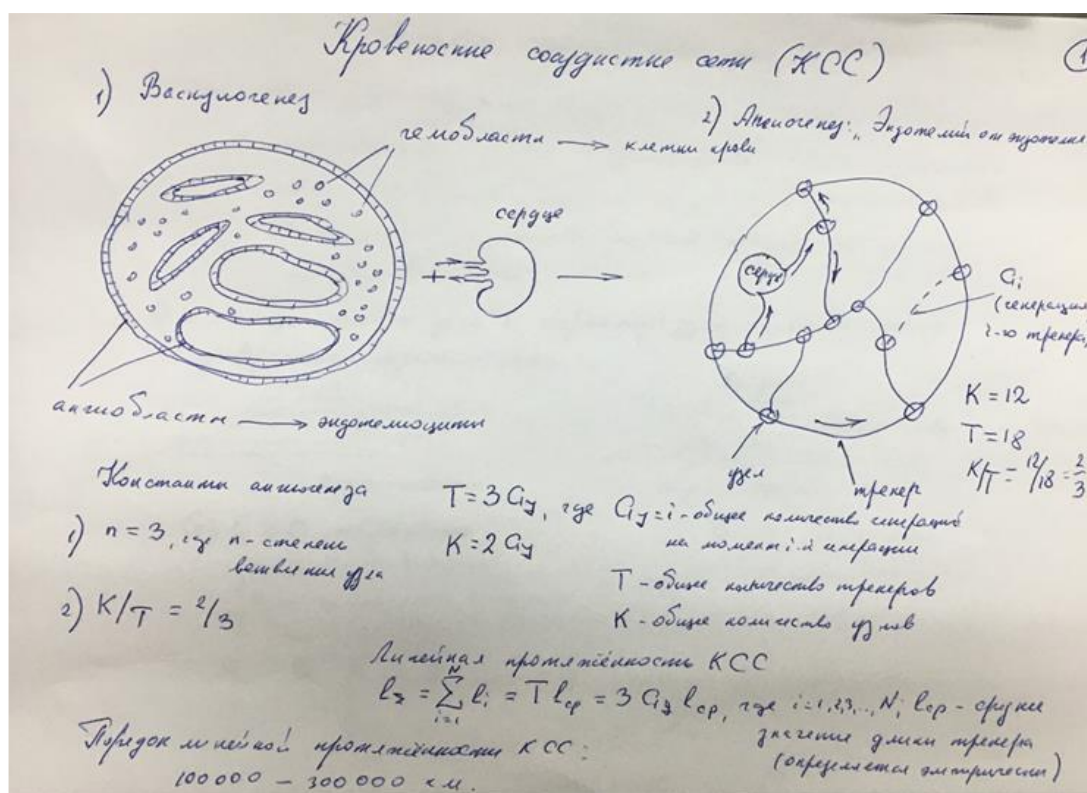 Кровеносные сосудистые сети (КСС)
1
1) Васкулогенез
2) Ангиогенез: „Эндотелий от эндотелия
гемобласты → клетки крови
сердце
+
сердце
Gi
(генерация
i-го трекера)
ангиобласты → эндотелиоциты
узел
трекер
K = 12
T = 18
K/T = 12/18 = 2/3
Константы ангиогенеза
1) n = 3, где n - степень
ветвления узла
2) K/T = 2/3
T = 3 Gy, где Gy = i - общее количество генераций
на момент i-й генерации
K = 2 Gy
T - общее количество трекеров
K - общее количество узлов
Линейная протяжённость КСС
lΣ = Σ li = T lср = 3 Gy lср, где i = 1, 2, 3, ..., N; lср - среднее
N
i=1
значение длины трекера
(определяется эмпирически)
Порядок линейной протяжённости КСС:
100 000 – 300 000 км.